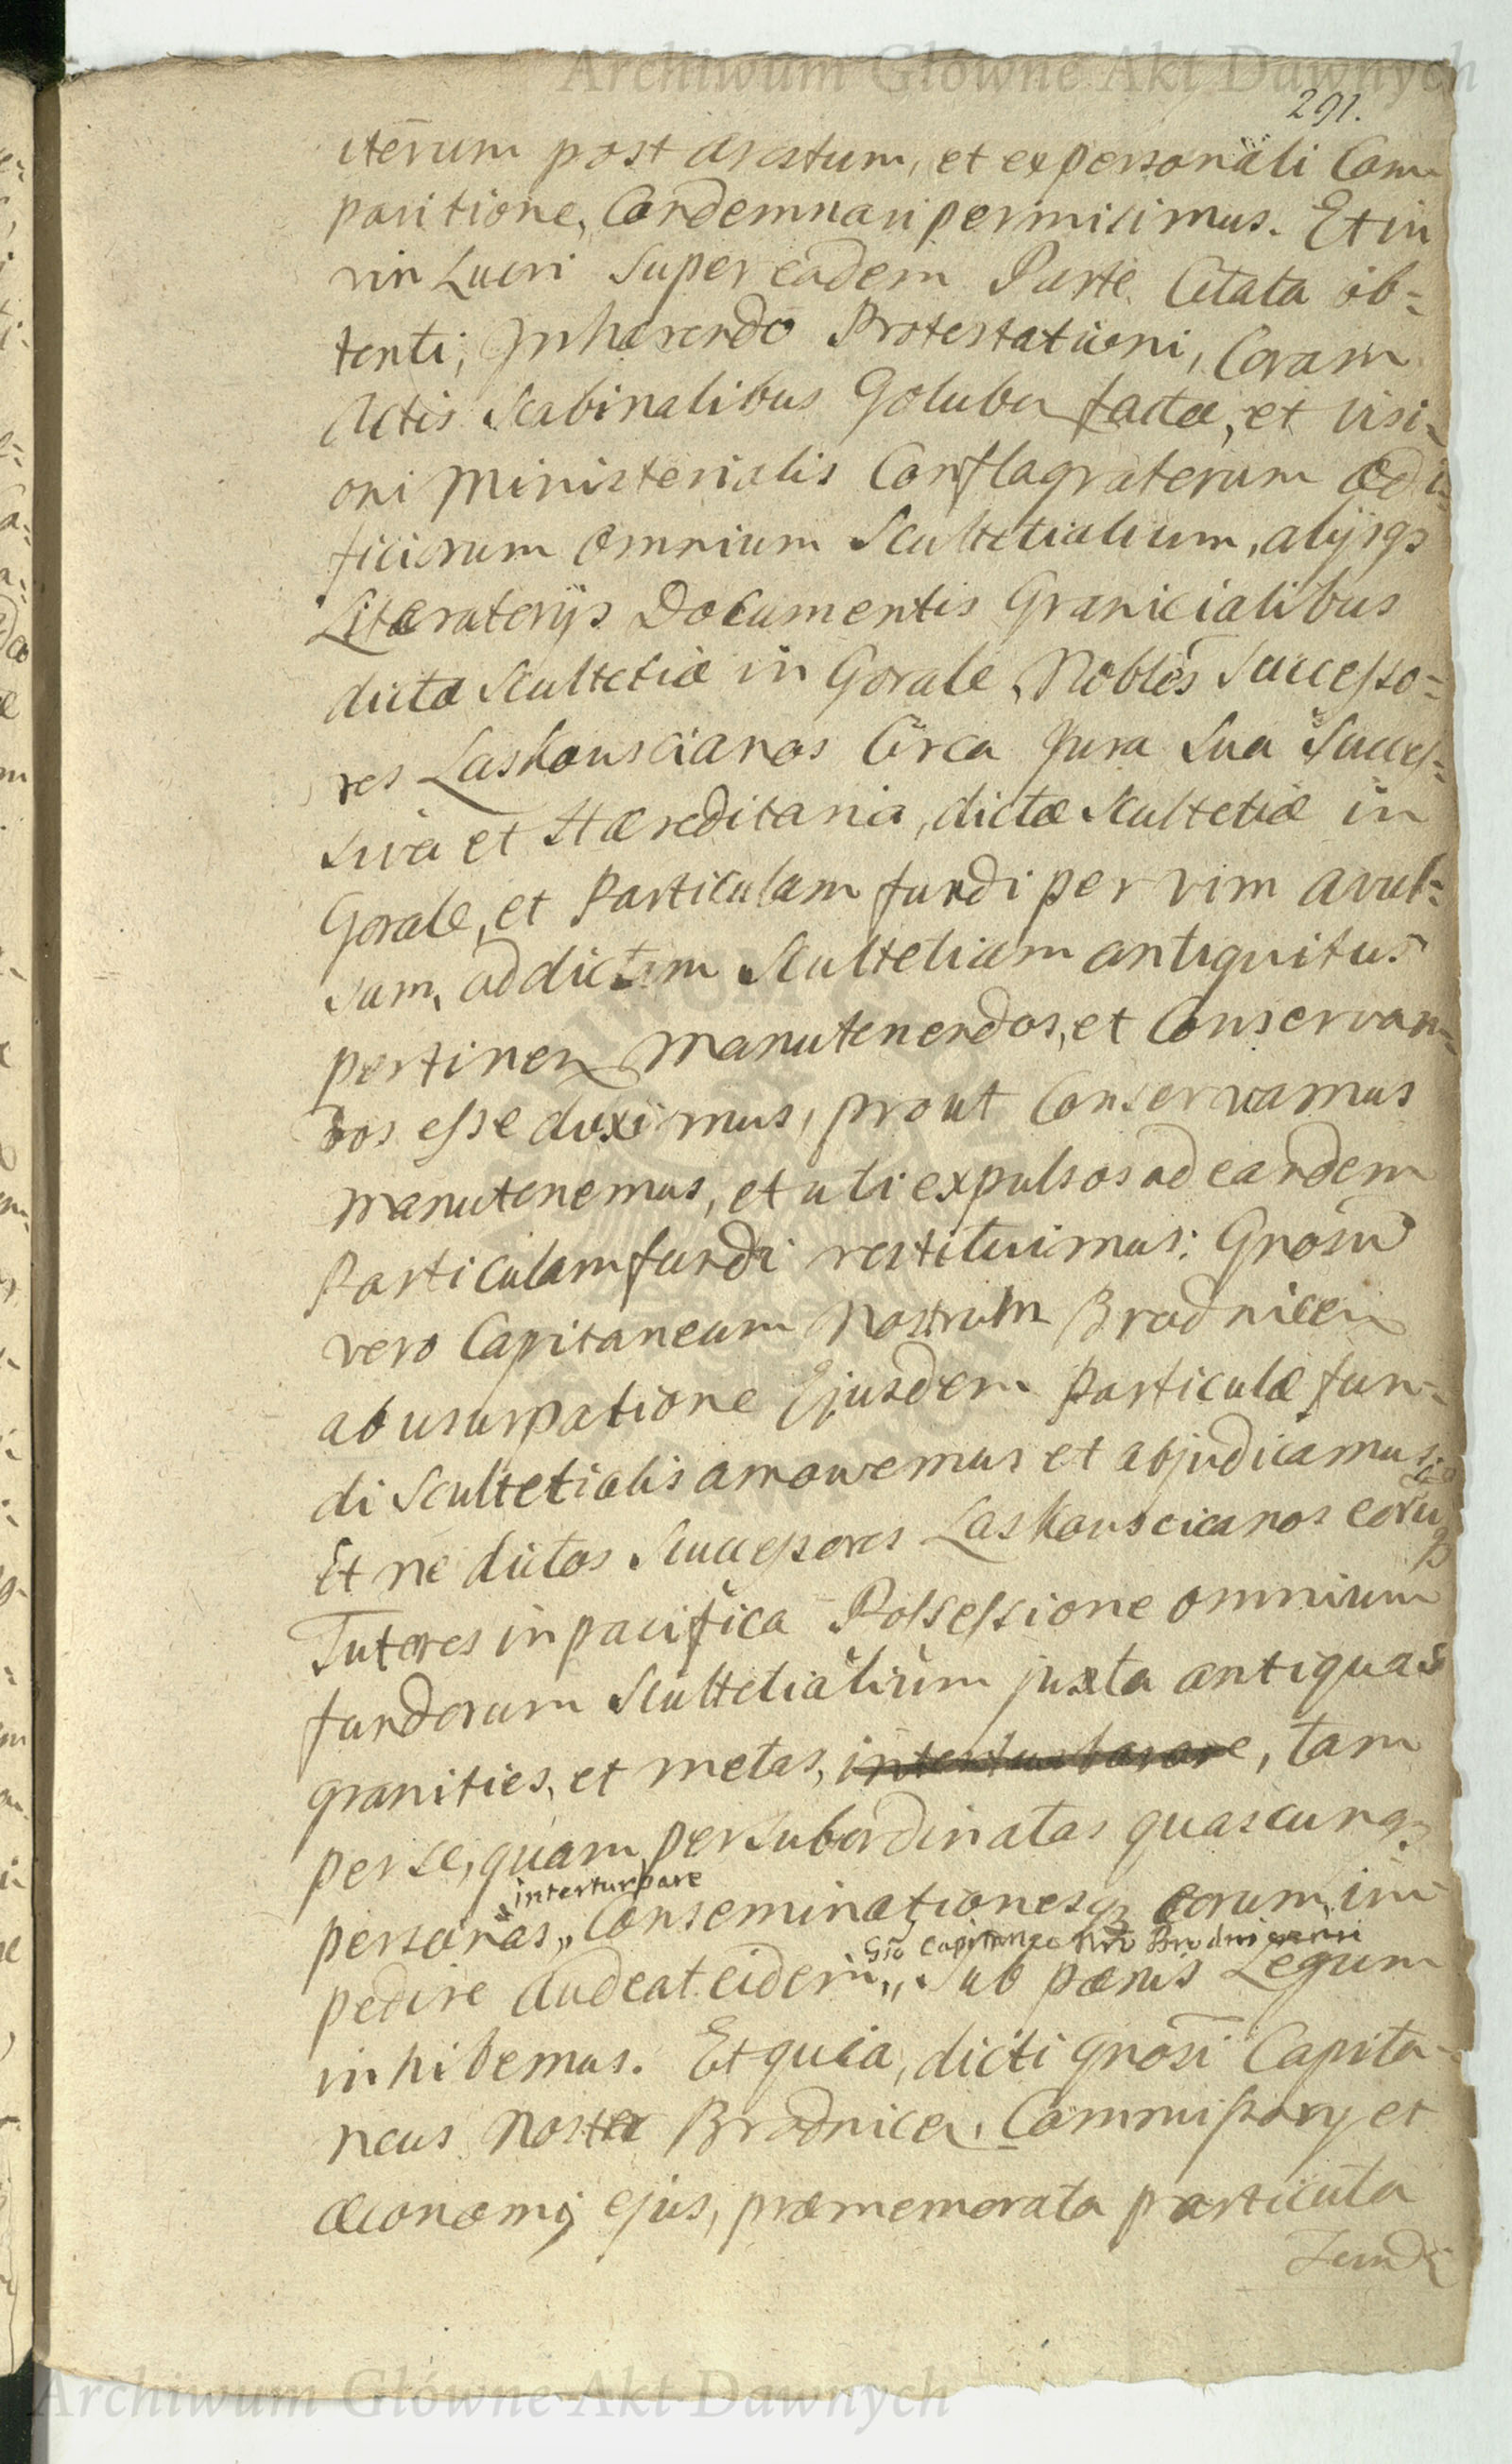 Archiwum Główne Akt Dawnych
291.
iterum post arestum, et ex personali Com
paritione, Condemnari permisimus. Et in
vin Lucri Super eadem Parte Citata ob=
tenti, Inhærendo Protestationi, Coram
Actis Scabinalibus Goluben factæ, et visi=
oni Ministerialis Conflagratorum ædi=
ficiorum omnium Scultetialium, alijsqs
Literatorijs Documentis Granicialibus
dictæ Scultetiæ in Gorale, Nobles Successo=
res Laskouscianos Circa Jura Sua Succes=
siva et Hæreditaria, dictæ Scultetiæ in
Gorale, et Particulam fundi per vim avul=
sam, ad dictam Scultetiam antiquitus
pertinen manutenendos, et Conservan=
dos esse duximus, prout Conservamus
manutenemus, et uti expulsos ad eandem
Particulam fundi restituimus: Gnosũ
vero Capitaneum Nostrum Brodnicen
ab usurpatione Ejusdem particulæ fun=
di Scultetialis amovemus et abjudicamus:
Et ne dictos Successores Laskouscianos eorũ
Tutores in pacifica Possessione omnium
fundorum Scultetialium juxta antiquas
granities, et metas, interturbarare, tam
per se, quam per subordinatas quascunqs
interturbare
personas,, Conseminationesqs eorum im
Gso Capitaneo Nro Brodnicensi
pedire audeat eidem,, Sub pænis Legum
inhibemus. Et quia, dicti gnosi Capita=
neus Noster Brodnicen, Commissary et
æconomj ejus, præmemorata particula
Fundi
Archiwum Główne Akt Dawnych